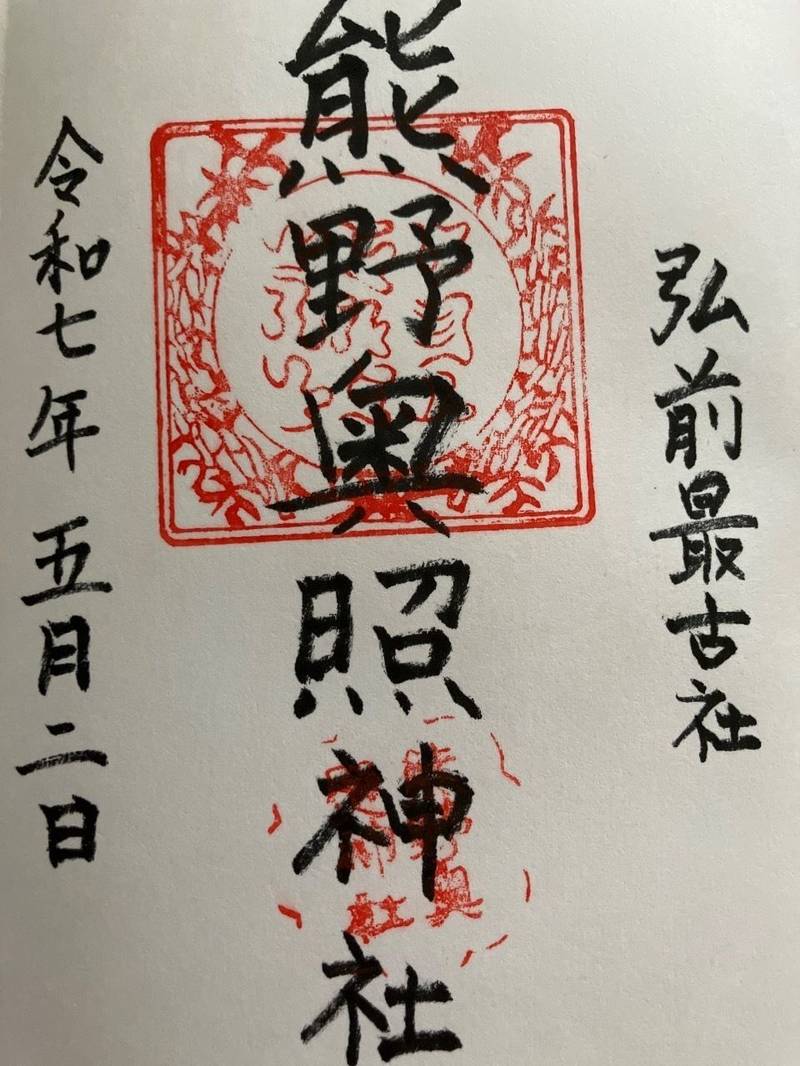 弘前最古社
熊野奥照神社
令和七年 五月二日